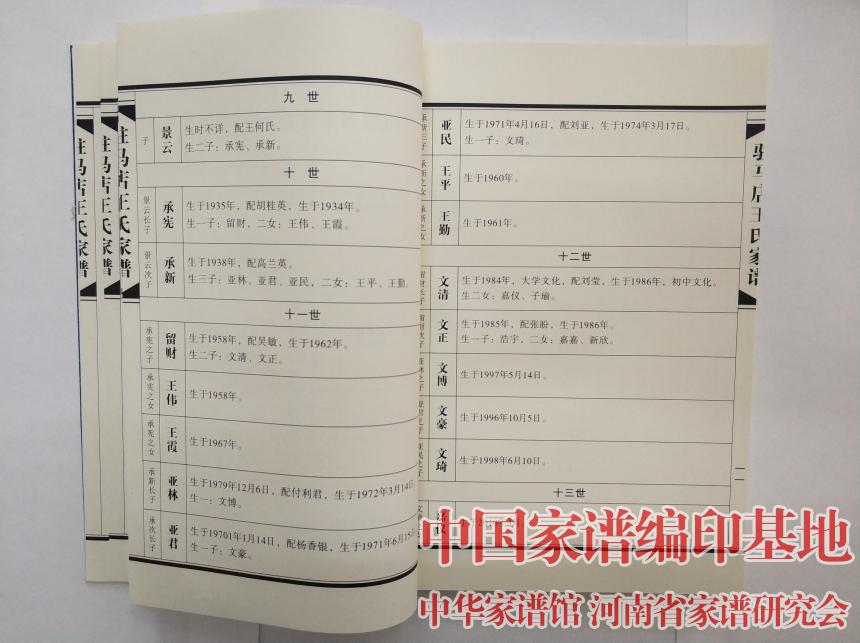 九 世
子
景云
生时不详，配王何氏。
生二子：承宪、承新。
十 世
景云长子
承宪
生于1935年，配胡桂英，生于1934年。
生一子：留财，二女：王伟、王霞。
景云次子
承新
生于1938年，配高兰英。
生三子：亚林、亚君、亚民，二女：王平、王勤。
十一世
承宪之子
留财
生于1958年，配吴敏，生于1962年。
生二子：文清、文正。
承宪之女
王伟
生于1958年。
承宪之女
王霞
生于1967年。
承新长子
亚林
生于1979年12月6日，配付利君，生于1972年3月14日。
生一：文博。
承次长子
亚君
生于19701年1月14日，配杨香银，生于1971年6月15
生一子：文豪。
承新三子
亚民
生于1971年4月16日，配刘亚，生于1974年3月17日。
生一子：文琦。
承新之女
王平
生于1960年。
承新之女
王勤
生于1961年。
十二世
留财长子
文清
生于1984年，大学文化，配刘莹，生于1986年，初中文化。
生二女：嘉仪、子瑜。
留财次子
文正
生于1985年，配张盼，生于1986年。
生一子：浩宇，二女：嘉嘉、新欣。
亚林之子
文博
生于1997年5月14日。
亚君之子
文豪
生于1996年10月5日。
亚民之子
文琦
生于1998年6月10日。
十三世
驻马店王氏家谱
驻马店王氏家谱
驻马店王氏家谱
驻马店王氏家谱
一一
中国家谱编印基地
中华家谱馆 河南省家谱研究会